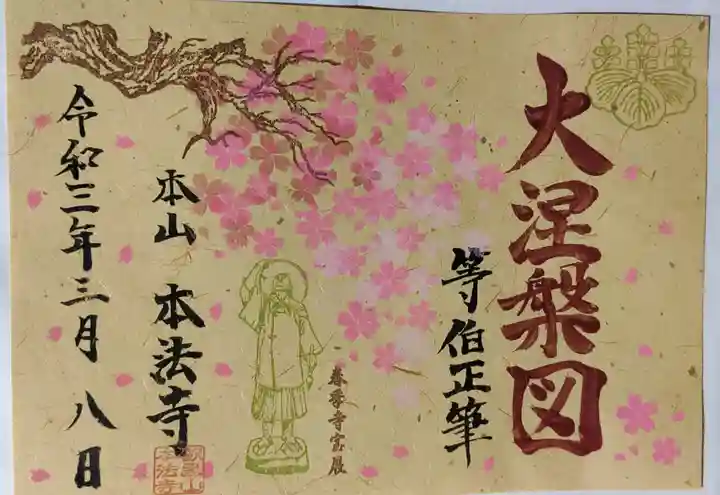 大涅槃図
等伯正筆
春季寺宝展
本山 本法寺
令和三年三月八日